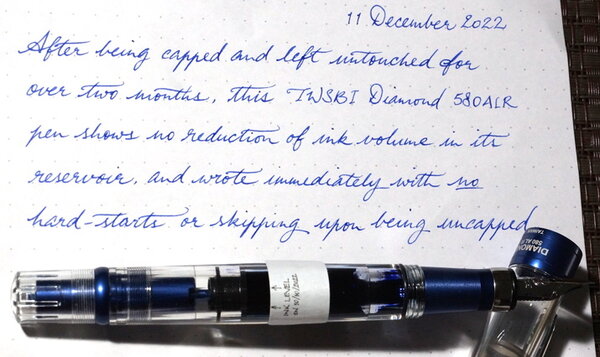 11 December 2022
After being capped and left untouched for
over two months, this TWSBI Diamond 580ALR
pen shows no reduction of ink volume in its
reservoir, and wrote immediately with no
hard-starts or skipping upon being uncapped
DIAMOND
580 AL
TAIWAN
INK LEVEL